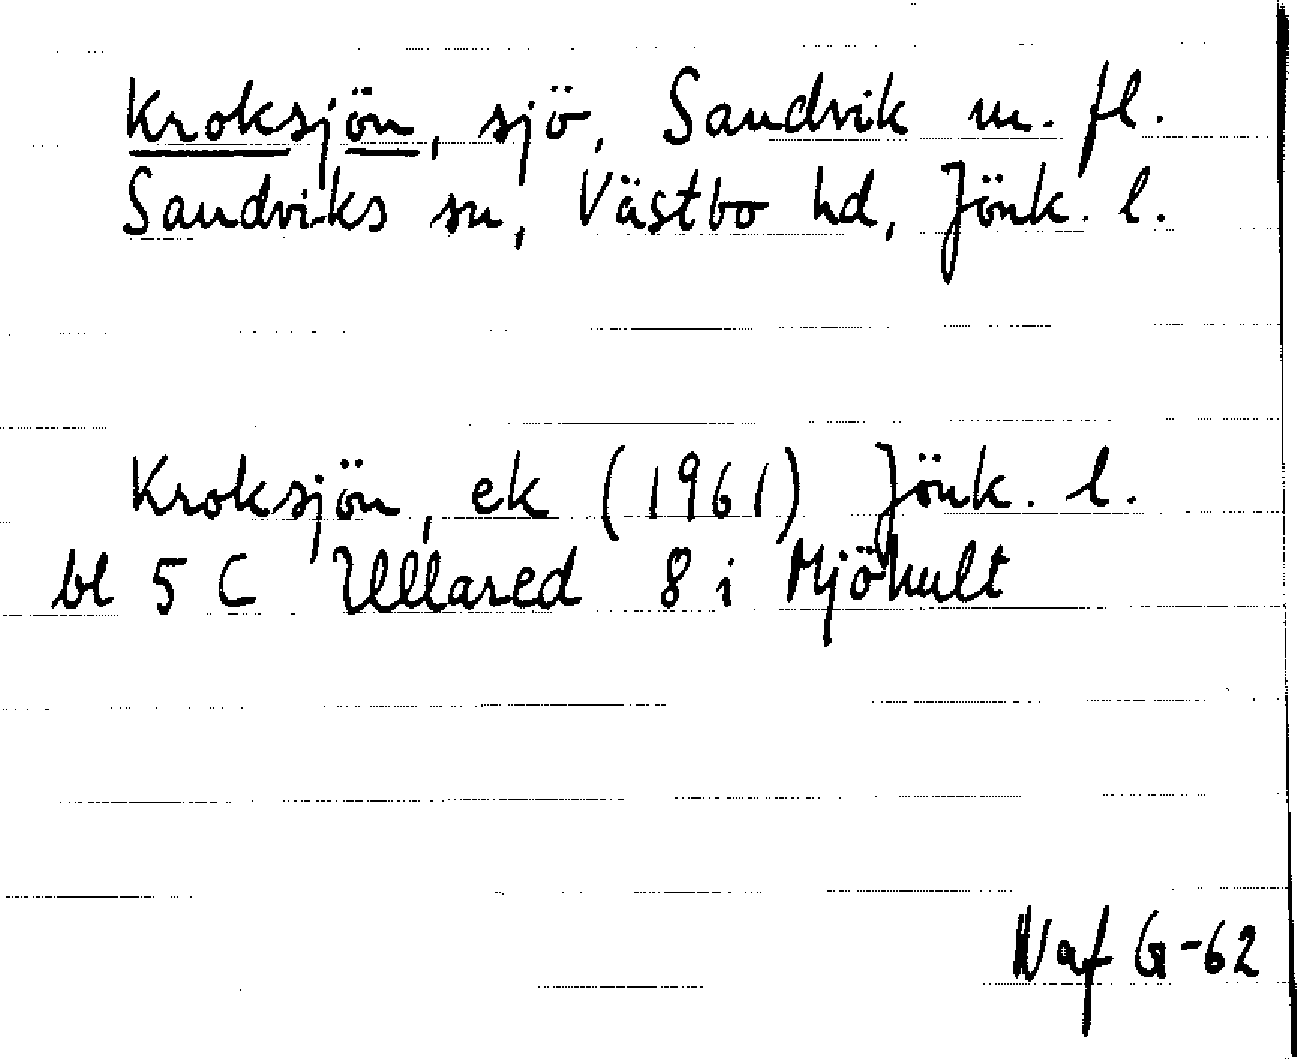 Kroksjön, sjö, Sandvik m. fl.
Sandviks sn, Västbo hd, Jönk. l.
Kroksjön, ek (1961) Jönk. l.
bl 5 C Ullared 8 i Mjöhult
Naf G-62